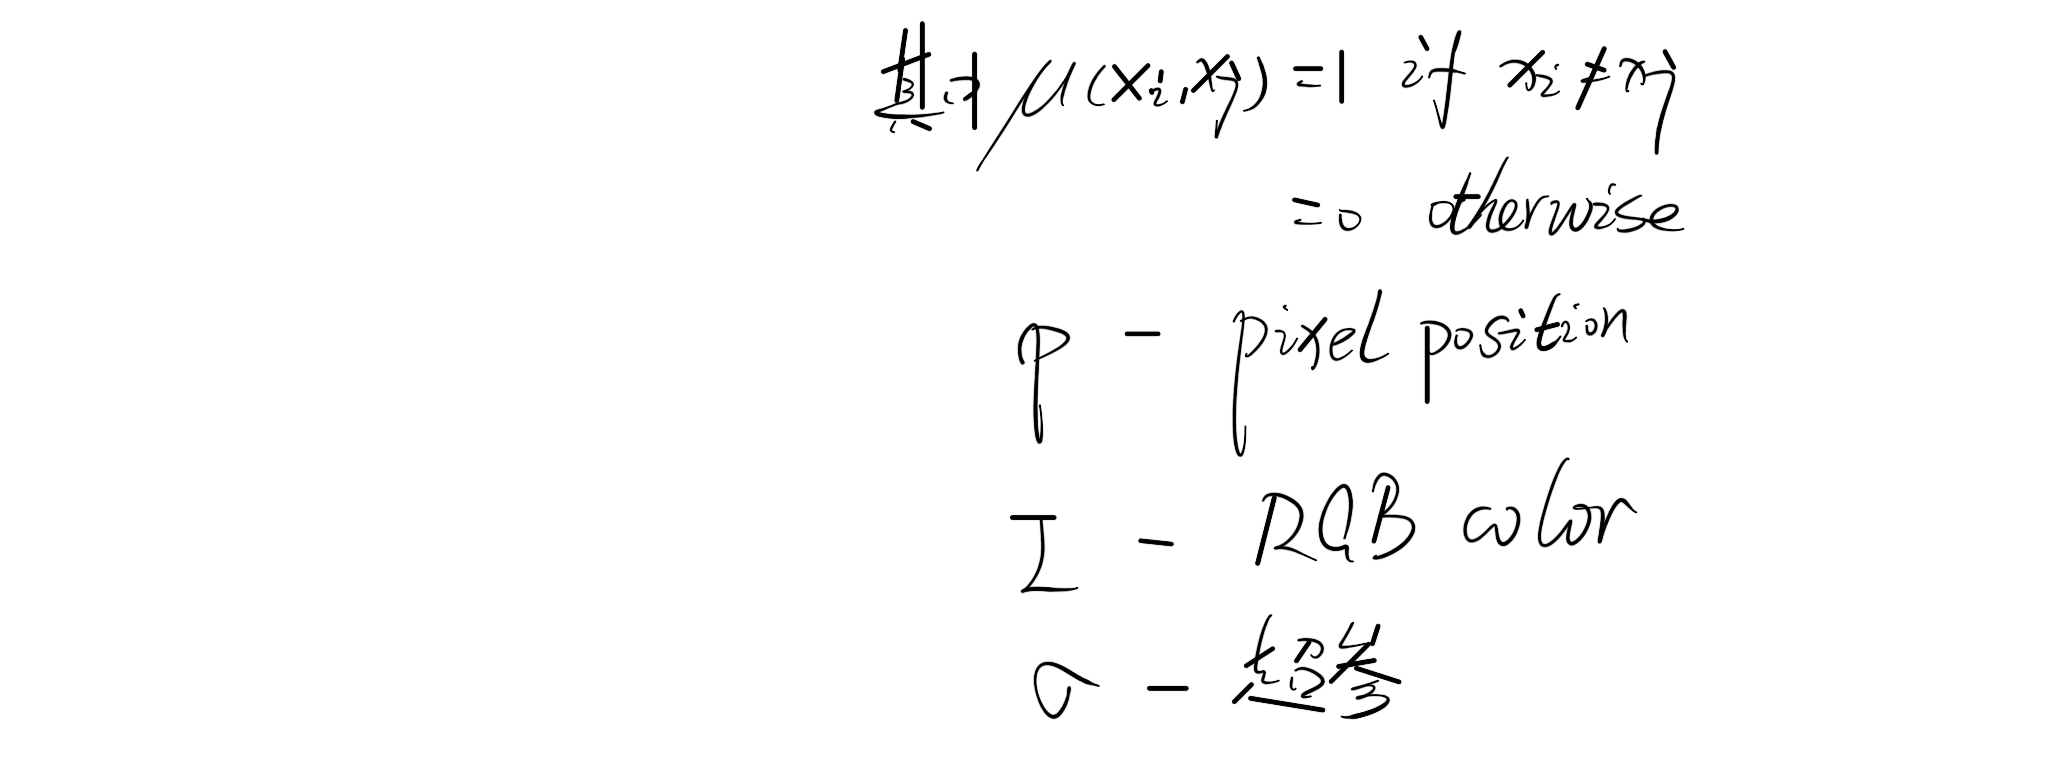 其中 μ(xi, xj) = 1 if xi ≠ xj
= 0 otherwise
p - pixel position
I - RGB color
σ - 超参